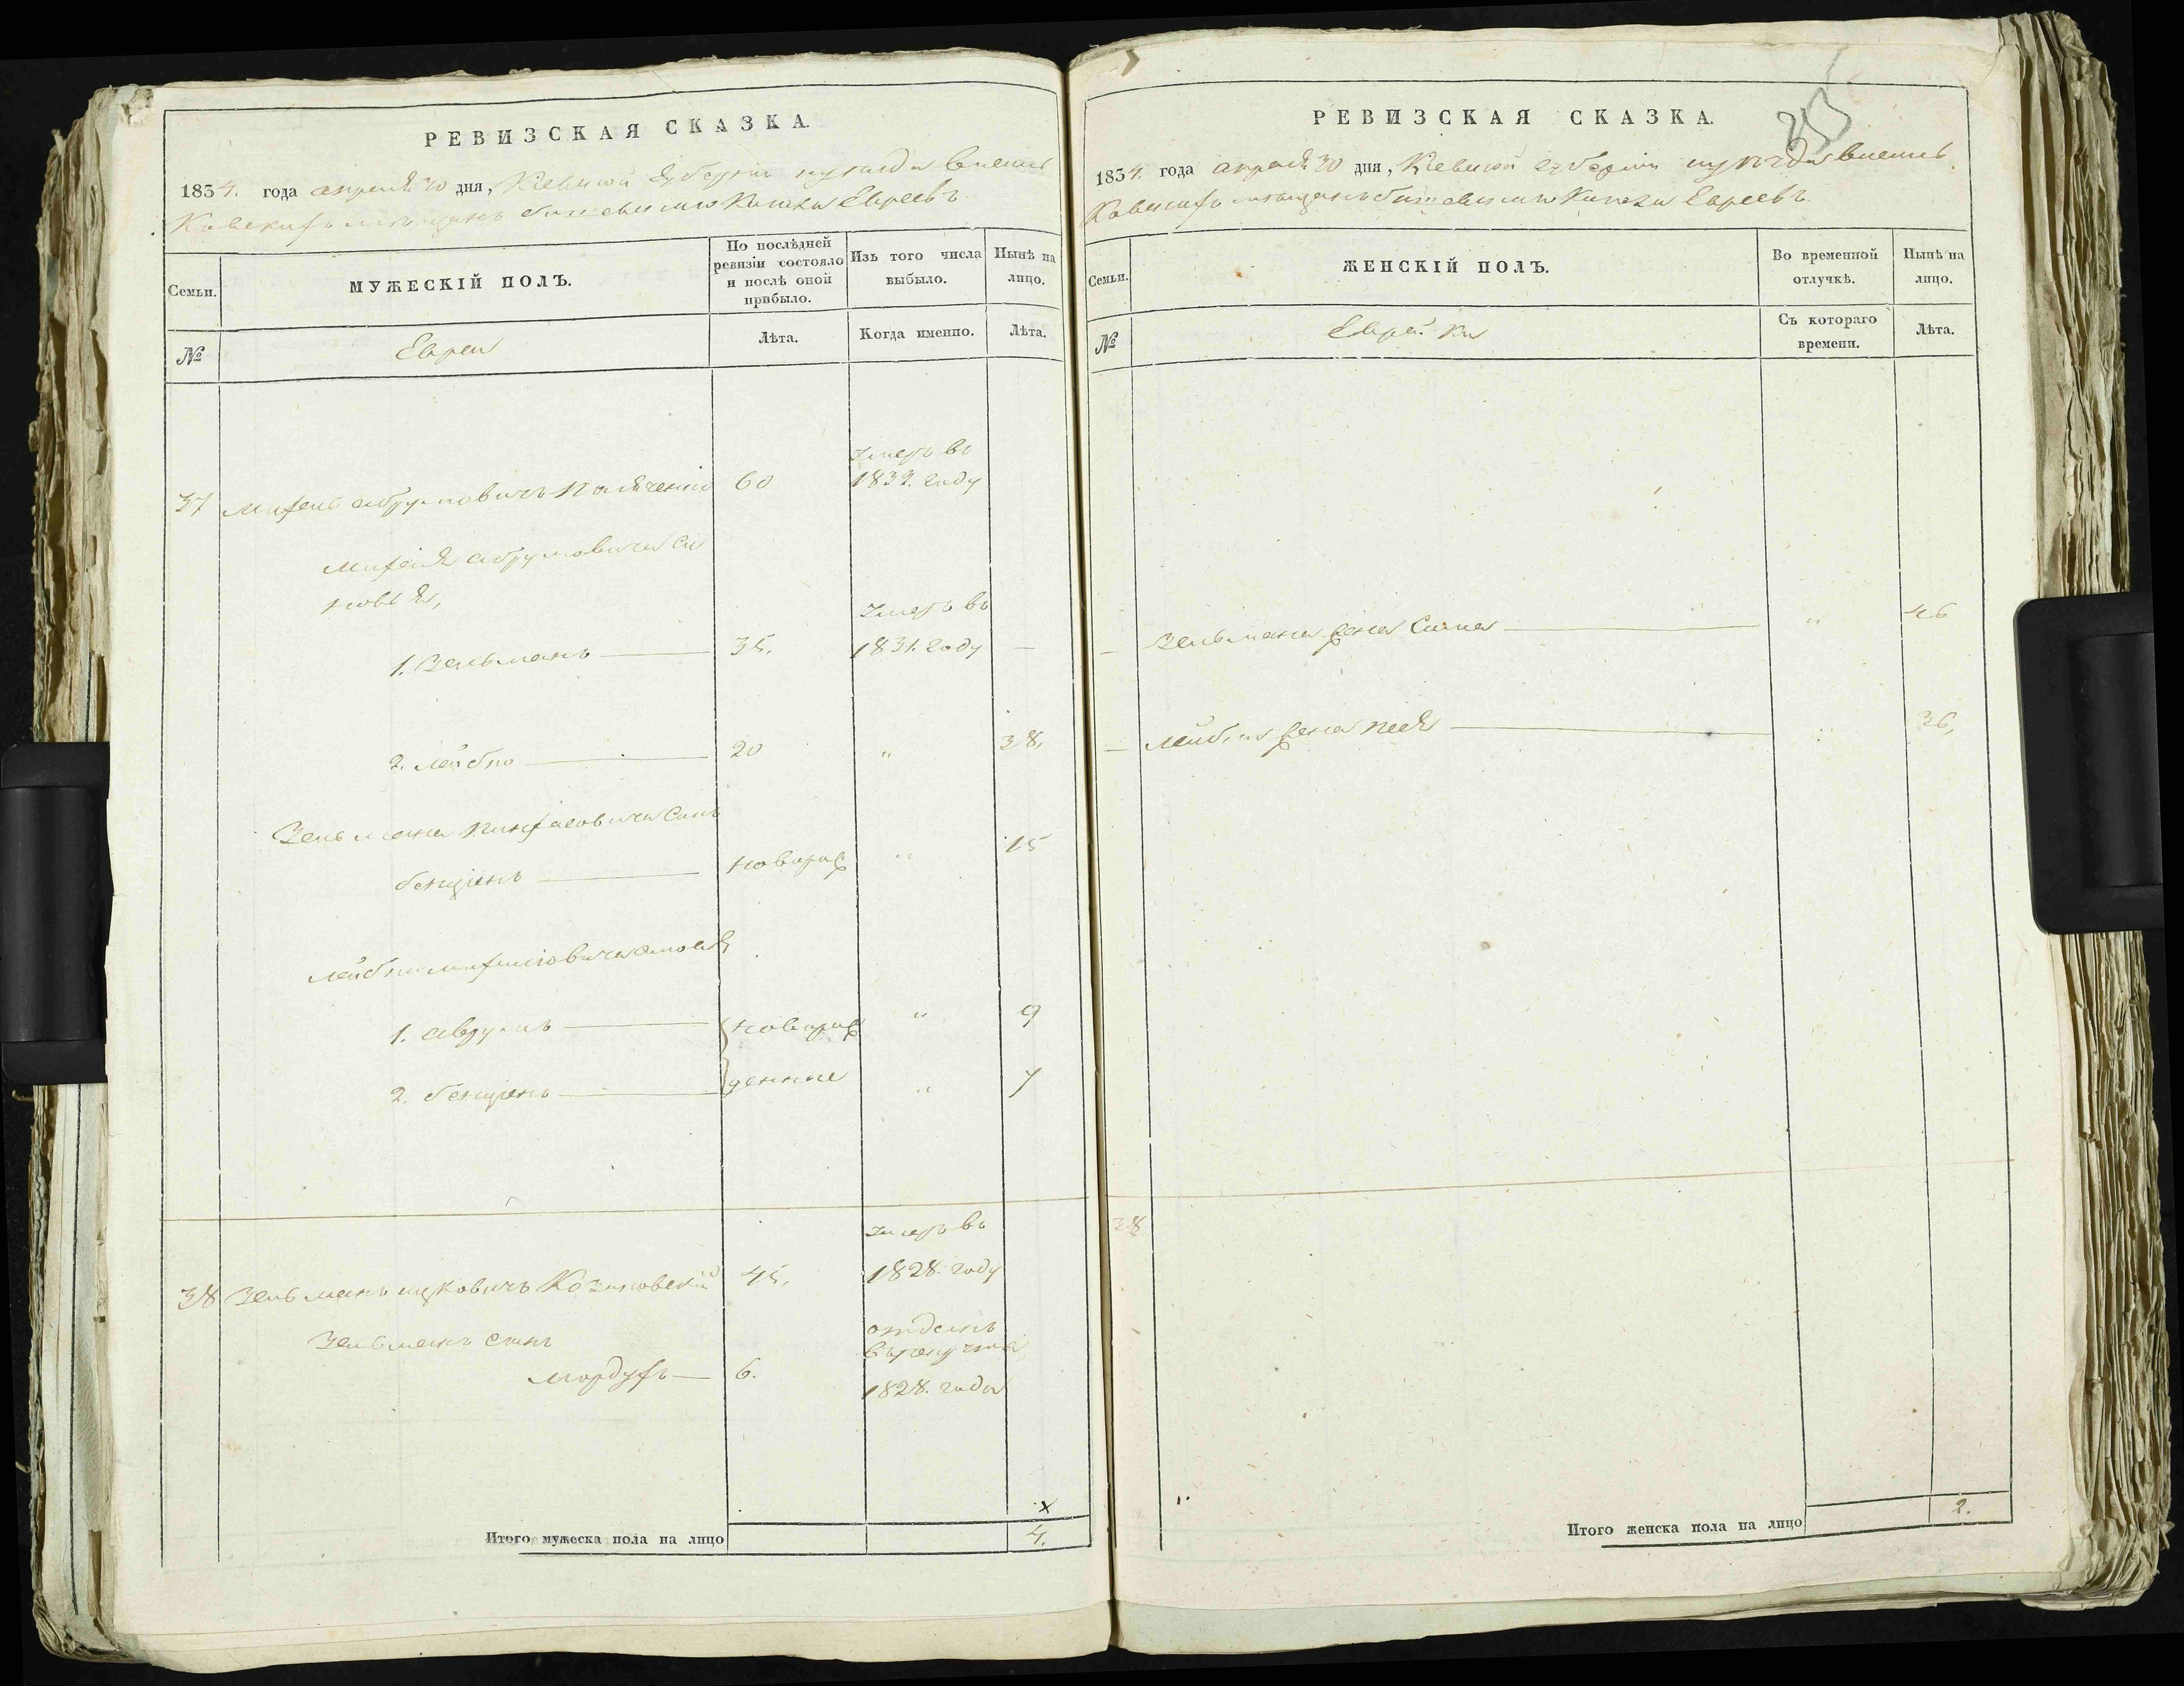 РЕВИЗСКАЯ СКАЗКА.
1834. года апреля 30 дня, Киевской губернии уезда
мещанъ Евреевъ
Семьи.
МУЖЕСКІЙ ПОЛЪ.
По послѣдней ревизіи состояло и послѣ оной прибыло.
Изъ того числа выбыло.
Нынѣ на лицо.
№
Евреи
Лѣта.
Когда именно.
Лѣта.
умеръ въ
37 Абрумовичъ 60 1832. году
Абрумовича сы
новья,
умеръ въ
1. Зельманъ — 35. 1831. году —
2. Лейбко — 20 " 38.
Зельмана сынъ
Бенціенъ — новорож " 15
Лейбки
1. Аврумъ — новорож " 9
2. Бенціенъ — денные " 7
умеръ въ
38 Зельманъ ицковичъ 45. 1828. году
Зельманъ сынъ
отданъ
въ рекруты
Мордухъ — 6.
1828. года
х
Итого мужеска пола на лицо 4.
РЕВИЗСКАЯ СКАЗКА.
1834. года апреля 30 дня, Киевской губернии уезда
мещанъ Евреевъ
Семьи.
ЖЕНСКІЙ ПОЛЪ.
Во временной отлучкѣ.
Нынѣ на лицо.
№
Еврейки
Съ котораго времени.
Лѣта.
— Зельмана жена — " 46
— Лейбки жена — " 36,
38
Итого женска пола на лицо 2.